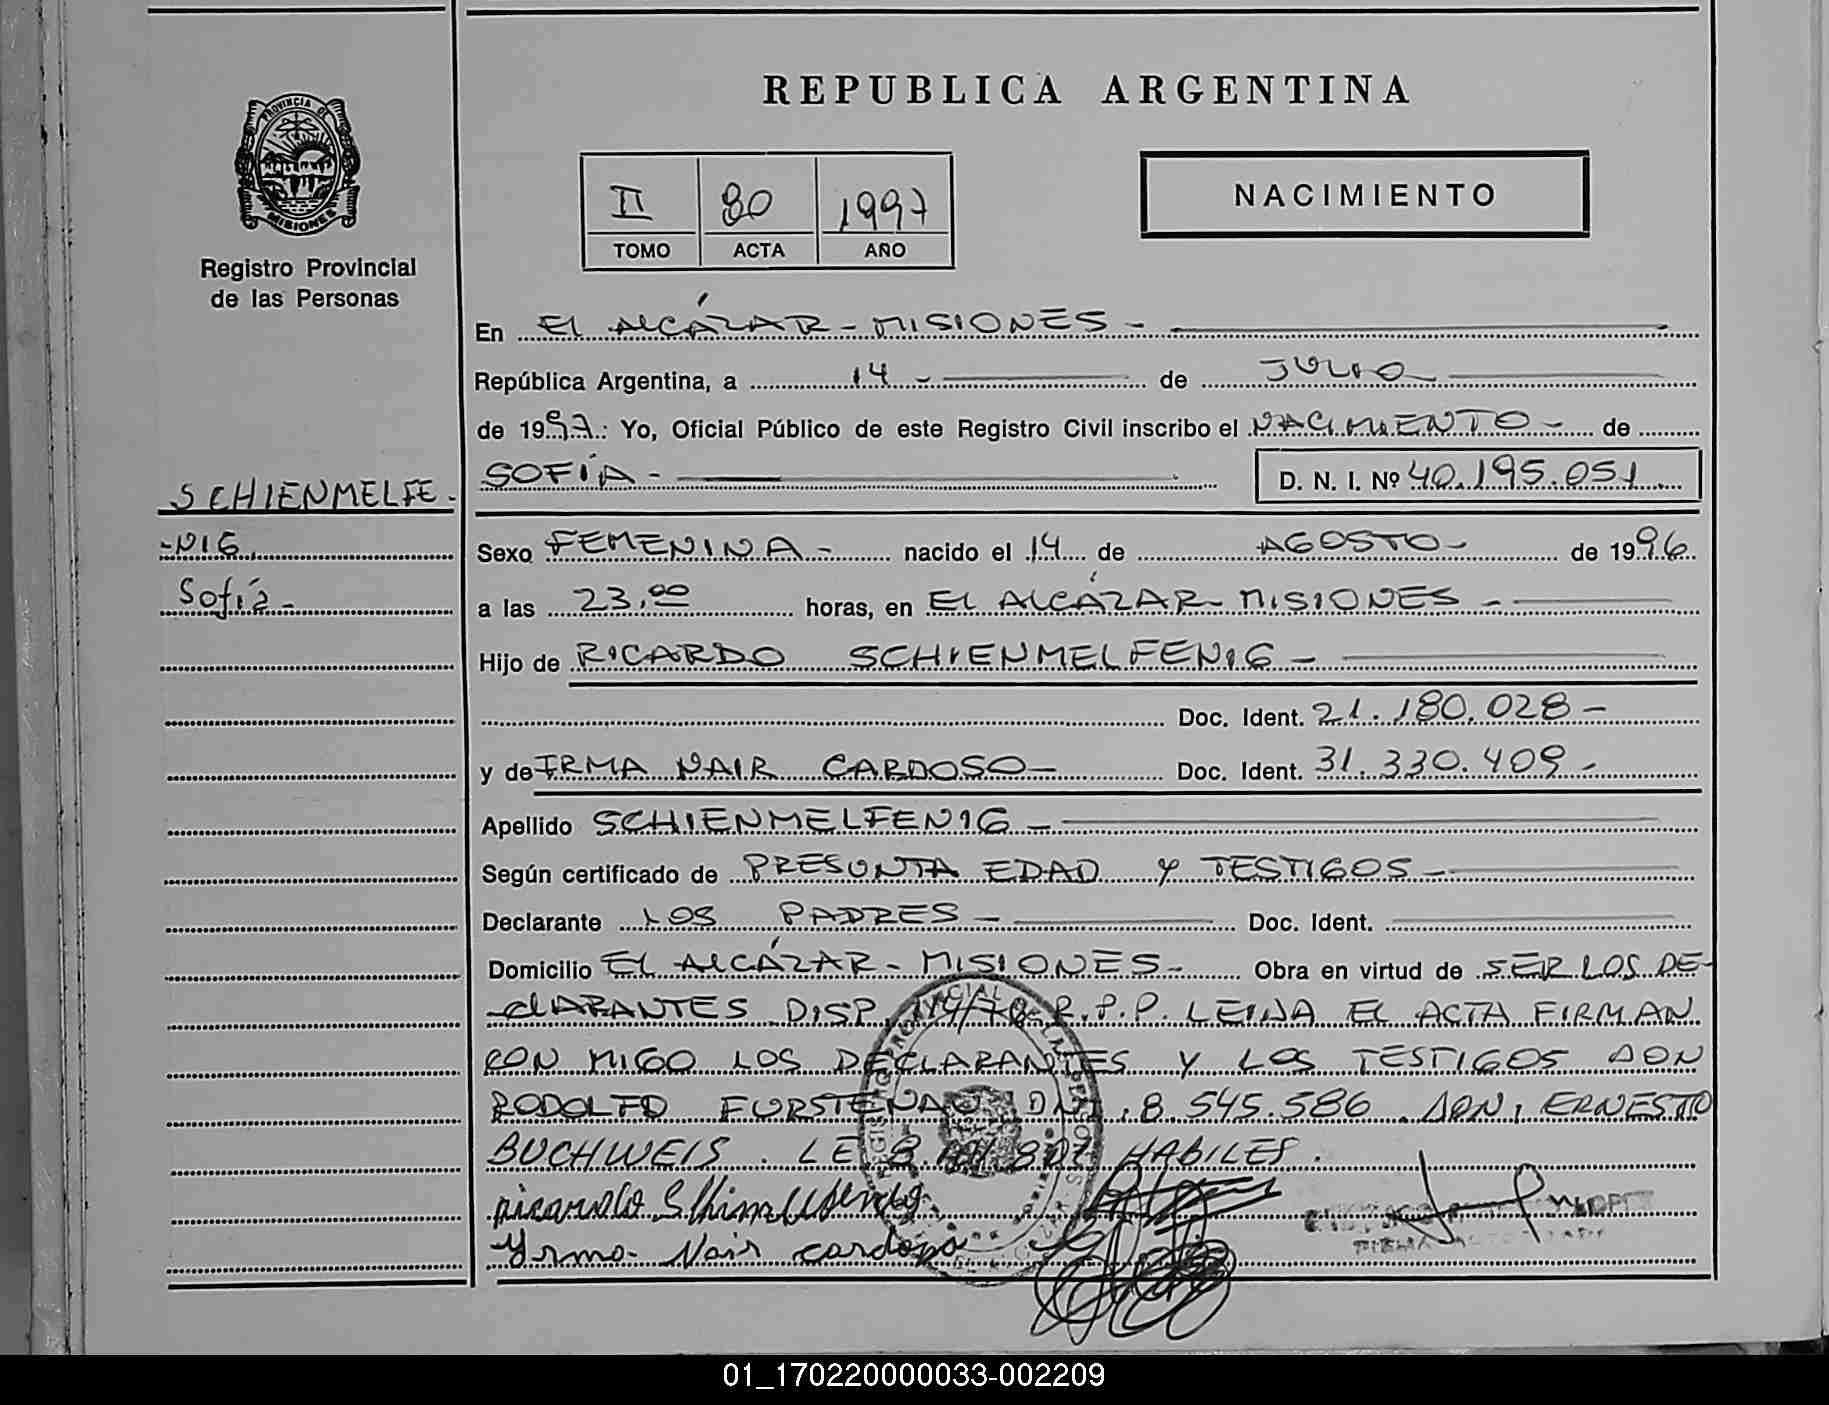 REPUBLICA ARGENTINA
PROVINCIA DE
MISIONES
Registro Provincial
de las Personas
II 80 1997
TOMO ACTA AÑO
NACIMIENTO
En EL ALCÁZAR - MISIONES -
República Argentina, a 14 - de JULIO
de 1997.: Yo, Oficial Público de este Registro Civil inscribo el NACIMIENTO - de
SOFÍA - D. N. I. Nº 40.195.051
SCHIENMELFE-
-NIG,
Sofía -
Sexo FEMENINA - nacido el 14 de AGOSTO - de 1996
a las 23,00 horas, en EL ALCÁZAR - MISIONES -
Hijo de RICARDO SCHIENMELFENIG -
Doc. Ident. 21.180.028 -
y de IRMA NAIR CARDOSO - Doc. Ident. 31.330.409 -
Apellido SCHIENMELFENIG -
Según certificado de PRESUNTA EDAD Y TESTIGOS -
Declarante LOS PADRES - Doc. Ident.
Domicilio EL ALCÁZAR - MISIONES - Obra en virtud de SER LOS DE-
-CLARANTES DISP. R.P.P. LEIDA EL ACTA FIRMAN
CON MIGO LOS DECLARANTES Y LOS TESTIGOS DON
RODOLFO FURSTENAU DNI. 8.545.586. DON, ERNESTO
BUCHWEIS. LE HABILES.
Ricardo
Yrma Nair cardoso
01_170220000033-002209